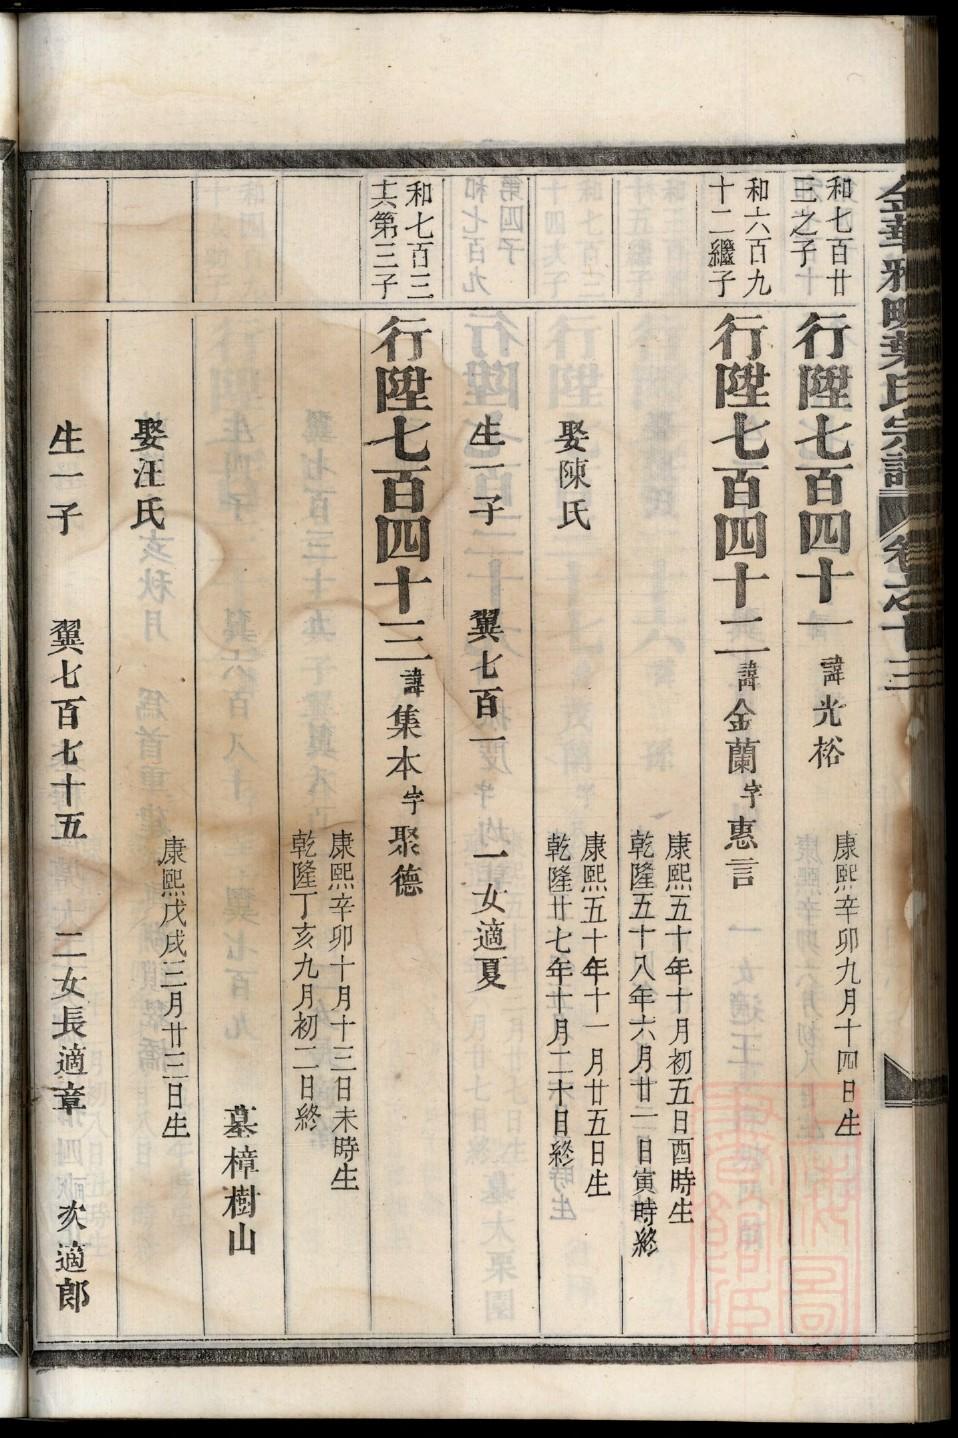 和七百廿
三之子
行陞七百四十一 諱光裕
康熙辛卯九月十四日生
和六百九
十二繼子
行陞七百四十二 諱金蘭字惠言
康熙五十年十月初五日酉時生
乾隆五十八年六月廿二日寅時終
娶陳氏
康熙五十年十一月廿五日生
乾隆廿七年十月二十日終
生一子 翼七百一 一女適夏
和七百三
其第三子
行陞七百四十三 諱集本字聚德
康熙辛卯十月十三日未時生
乾隆丁亥九月初二日終
墓樟樹山
娶汪氏
康熙戊戌三月廿三日生
生一子 翼七百七十五 二女長適章 次適郎